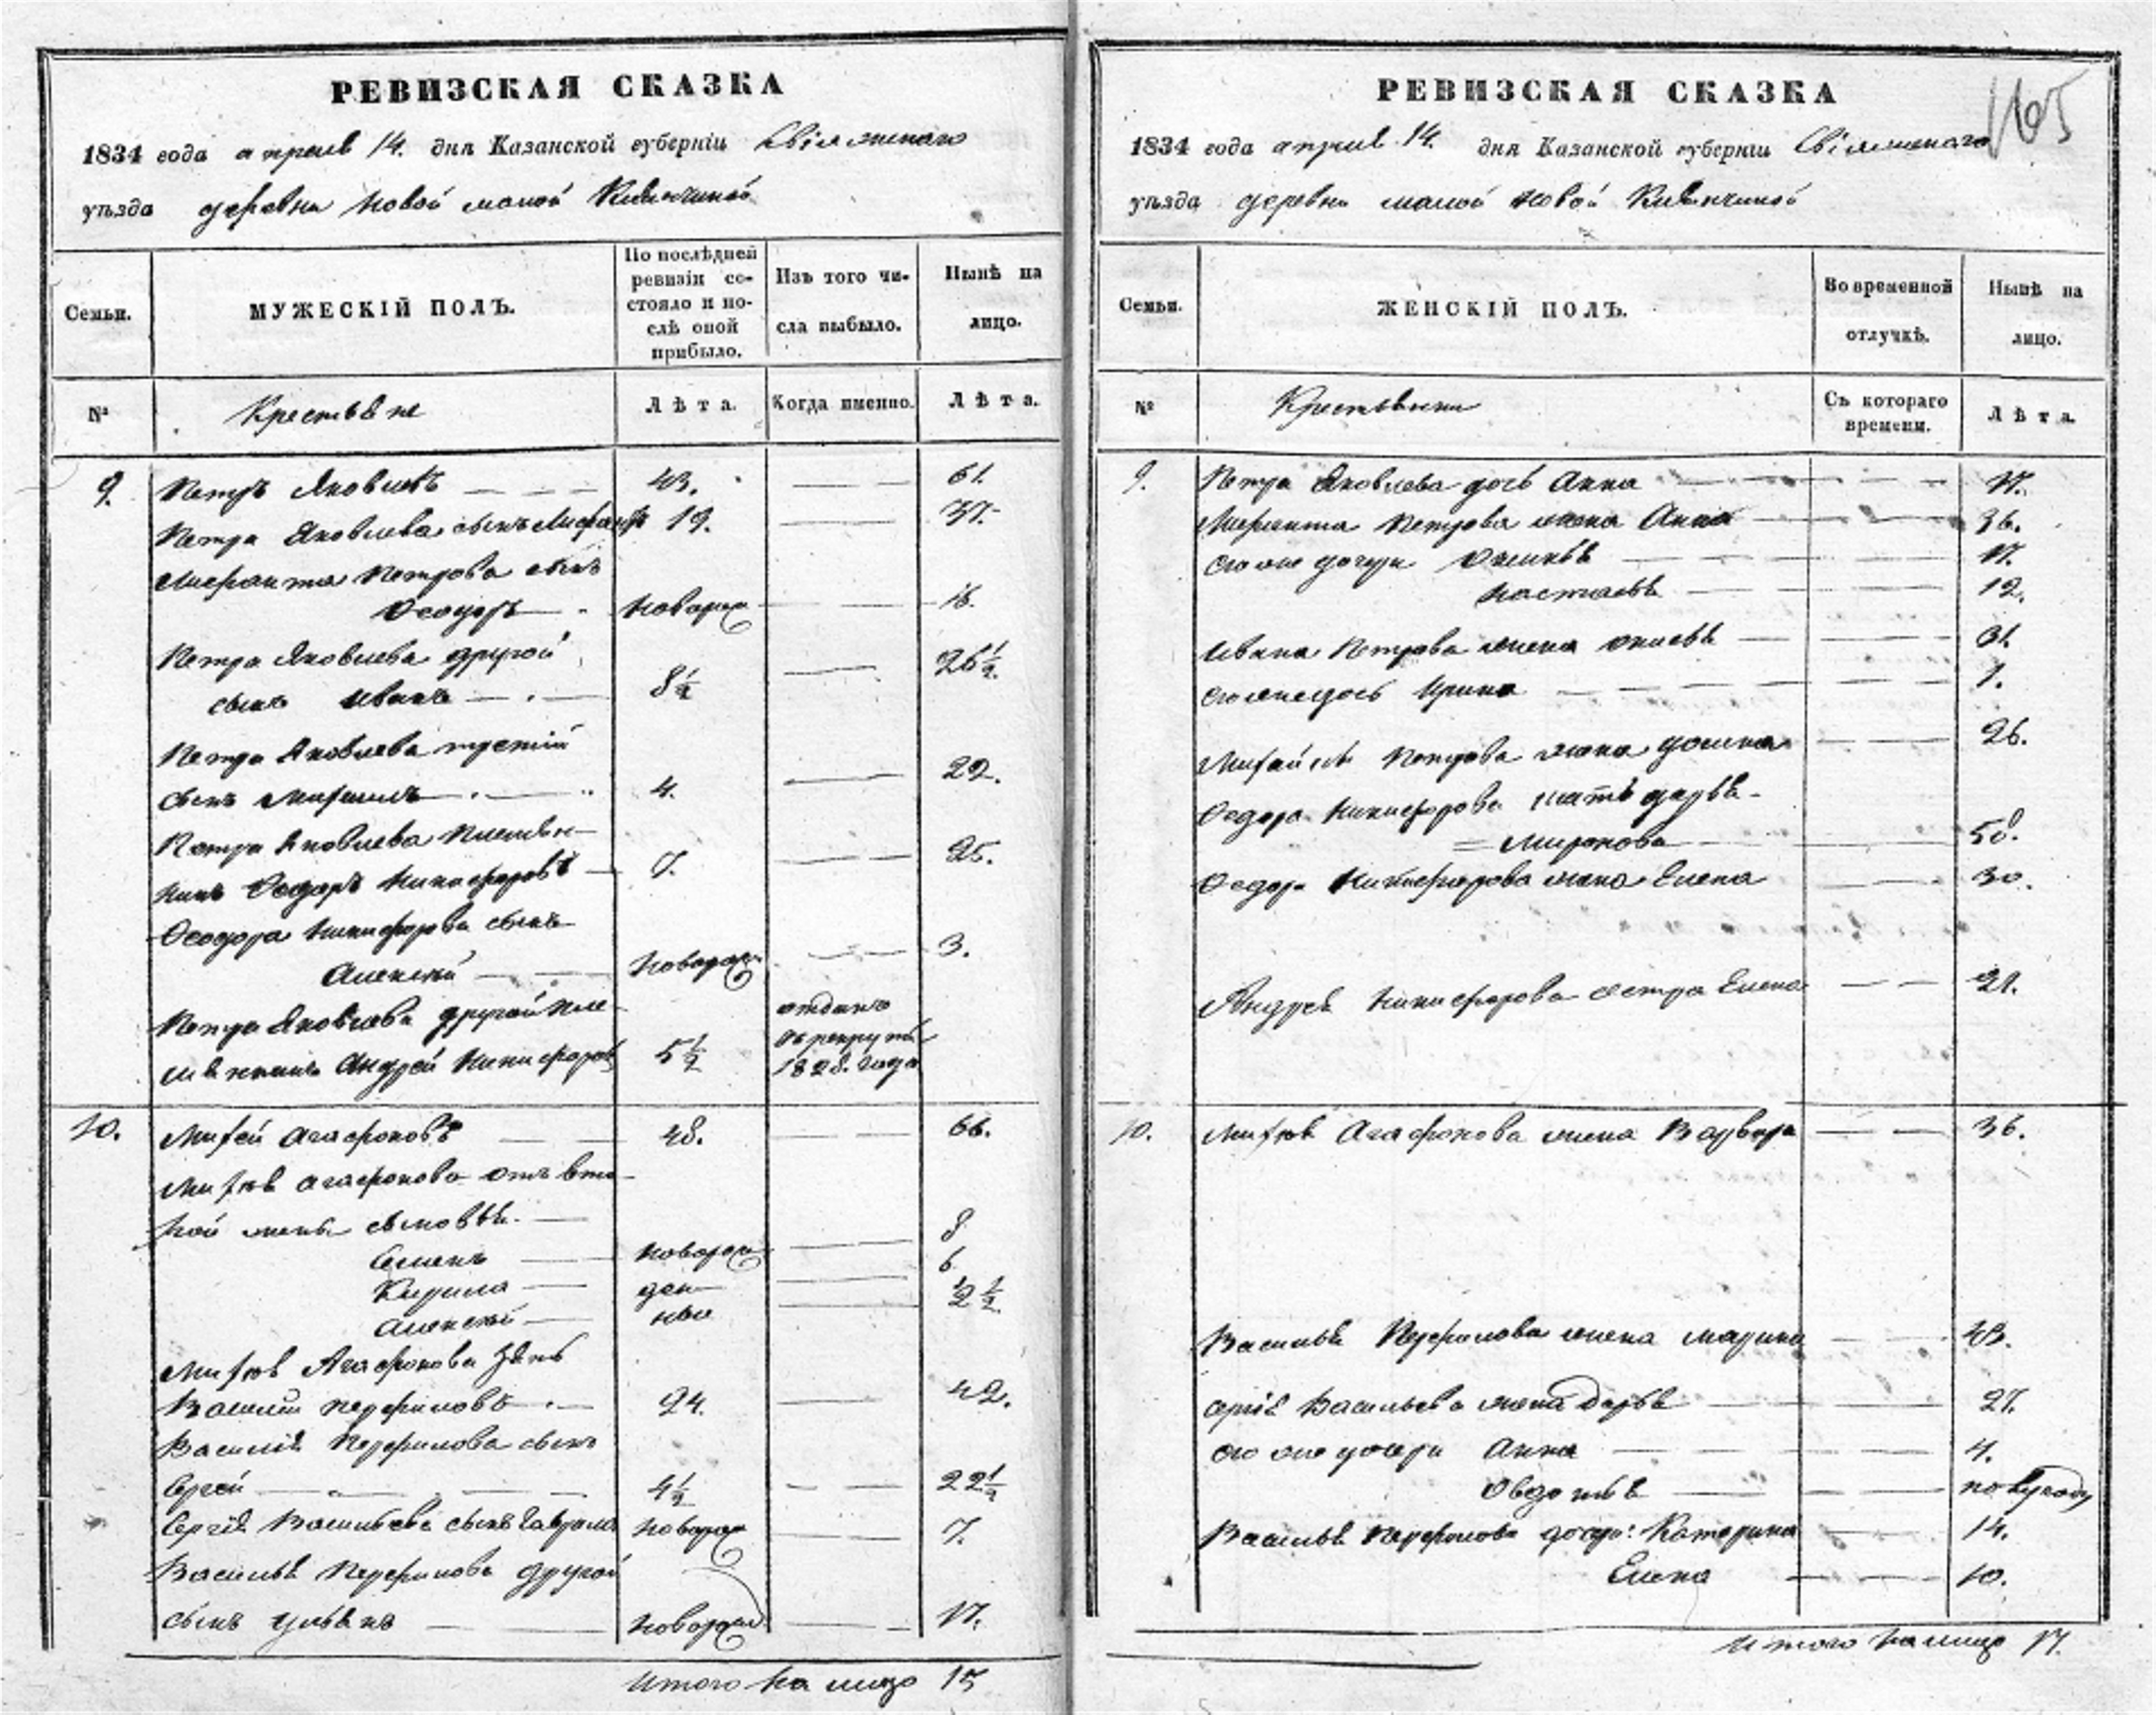 РЕВИЗСКАЯ СКАЗКА
1834 года апреля 14. дня Казанской губерніи Свіяжскаго
уѣзда деревни Новой малой
Семьи.
МУЖЕСКІЙ ПОЛЪ.
По послѣдней ревизіи состояло и послѣ оной прибыло.
Изъ того числа выбыло.
Нынѣ на лицо.
№
Крестьяне
Лѣта.
Когда именно.
Лѣта.
9. Петръ Яковлевъ 43. 61.
Петра Яковлева сынъ 19. 37.
Петрова сынъ
Феодоръ новорож 16.
Петра Яковлева другой
сынъ Иванъ 8½ 26½
Петра Яковлева третий
сынъ Михаилъ 4. 22.
Петра Яковлева племян-
никъ Федоръ Никифоровъ 7. 25.
Феодора Никифорова сынъ
Алексѣй новорож 3.
Петра Яковлева другой пле-
мянникъ Андрей Никифоровъ 5½ отданъ въ рекруты 1828. года
10. Михей Агафоновъ 48. 66.
Михѣя Агафонова отъ вто-
рой жены сыновья
Семенъ новорож 8
Кирила ден 6
Алексѣй ные 2½
Михѣя Агафонова зять
Василий Перфиловъ 24. 42.
Василия Перфилова сынъ
Сергей 4½ 22½
Сергѣя Васильева сынъ Гаврила новорож 7.
Василья Перфилова другой
сынъ Ульянъ новорож 17.
Итого на лицо 15
РЕВИЗСКАЯ СКАЗКА
165
1834 года апреля 14. дня Казанской губерніи Свіяжскаго
уѣзда деревни малой Новой
Семьи.
ЖЕНСКІЙ ПОЛЪ.
Во временной отлучкѣ.
Нынѣ на лицо.
№
Крестьянки
Съ котораго времени.
Лѣта.
9. Петра Яковлева дочь Анна 17.
Петрова жена Анна 36.
его же дочери 17.
Настасья 12.
Ивана Петрова жена 31.
его же дочь Ирина 1.
Михайлы Петрова жена 26.
Федора Никифорова мать Дарья
Миронова 50.
Федора Никифорова жена Елена 30.
Андрея Никифорова сестра Елена 21.
10. Михѣя Агафонова жена Варвара 36.
Василья Перфилова жена Марина 43.
Сергѣя Васильева жена Дарья 27.
его же дочери Анна 4.
Овдотья полугоду
Василья Перфилова дочери: Катерина 14.
Елена 10.
Итого на лицо 17.